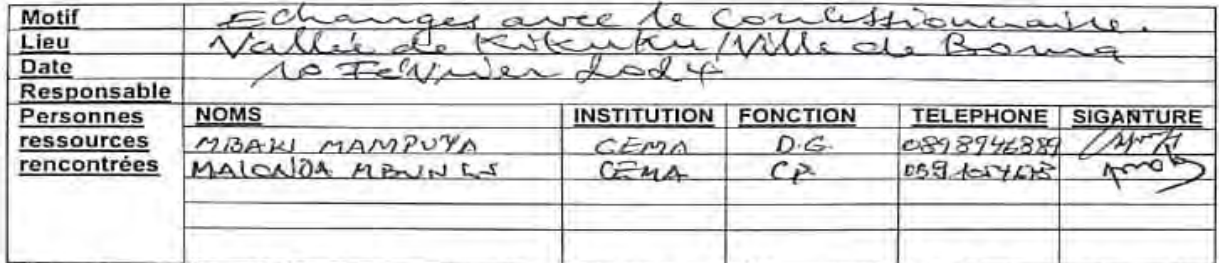 Motif Echanges avec le Concessionnaire.
Lieu Vallée de Kikuku / Ville de Boma
Date 10 Février 2024
Responsable
Personnes ressources rencontrées NOMS INSTITUTION FONCTION TELEPHONE SIGANTURE
MBAKI MAMPUYA CEMA D.G. 0898946889
MALONDA CEMA CP